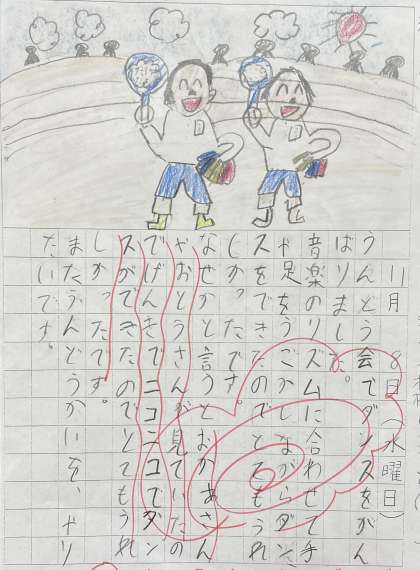 11月8日(水曜日)
うんどう会でダンスをがん
ばりました。
音楽のリズムに合わせて手
や足をうごかしながらダン
スをできたのでとてもうれ
しかったです。
なぜかと言うとおかあさん
やおとうさんが見ていたの
でげんきでニコニコでダン
スができたのでとてもうれ
しかったです。
またうんどうかいを、やり
たいです。